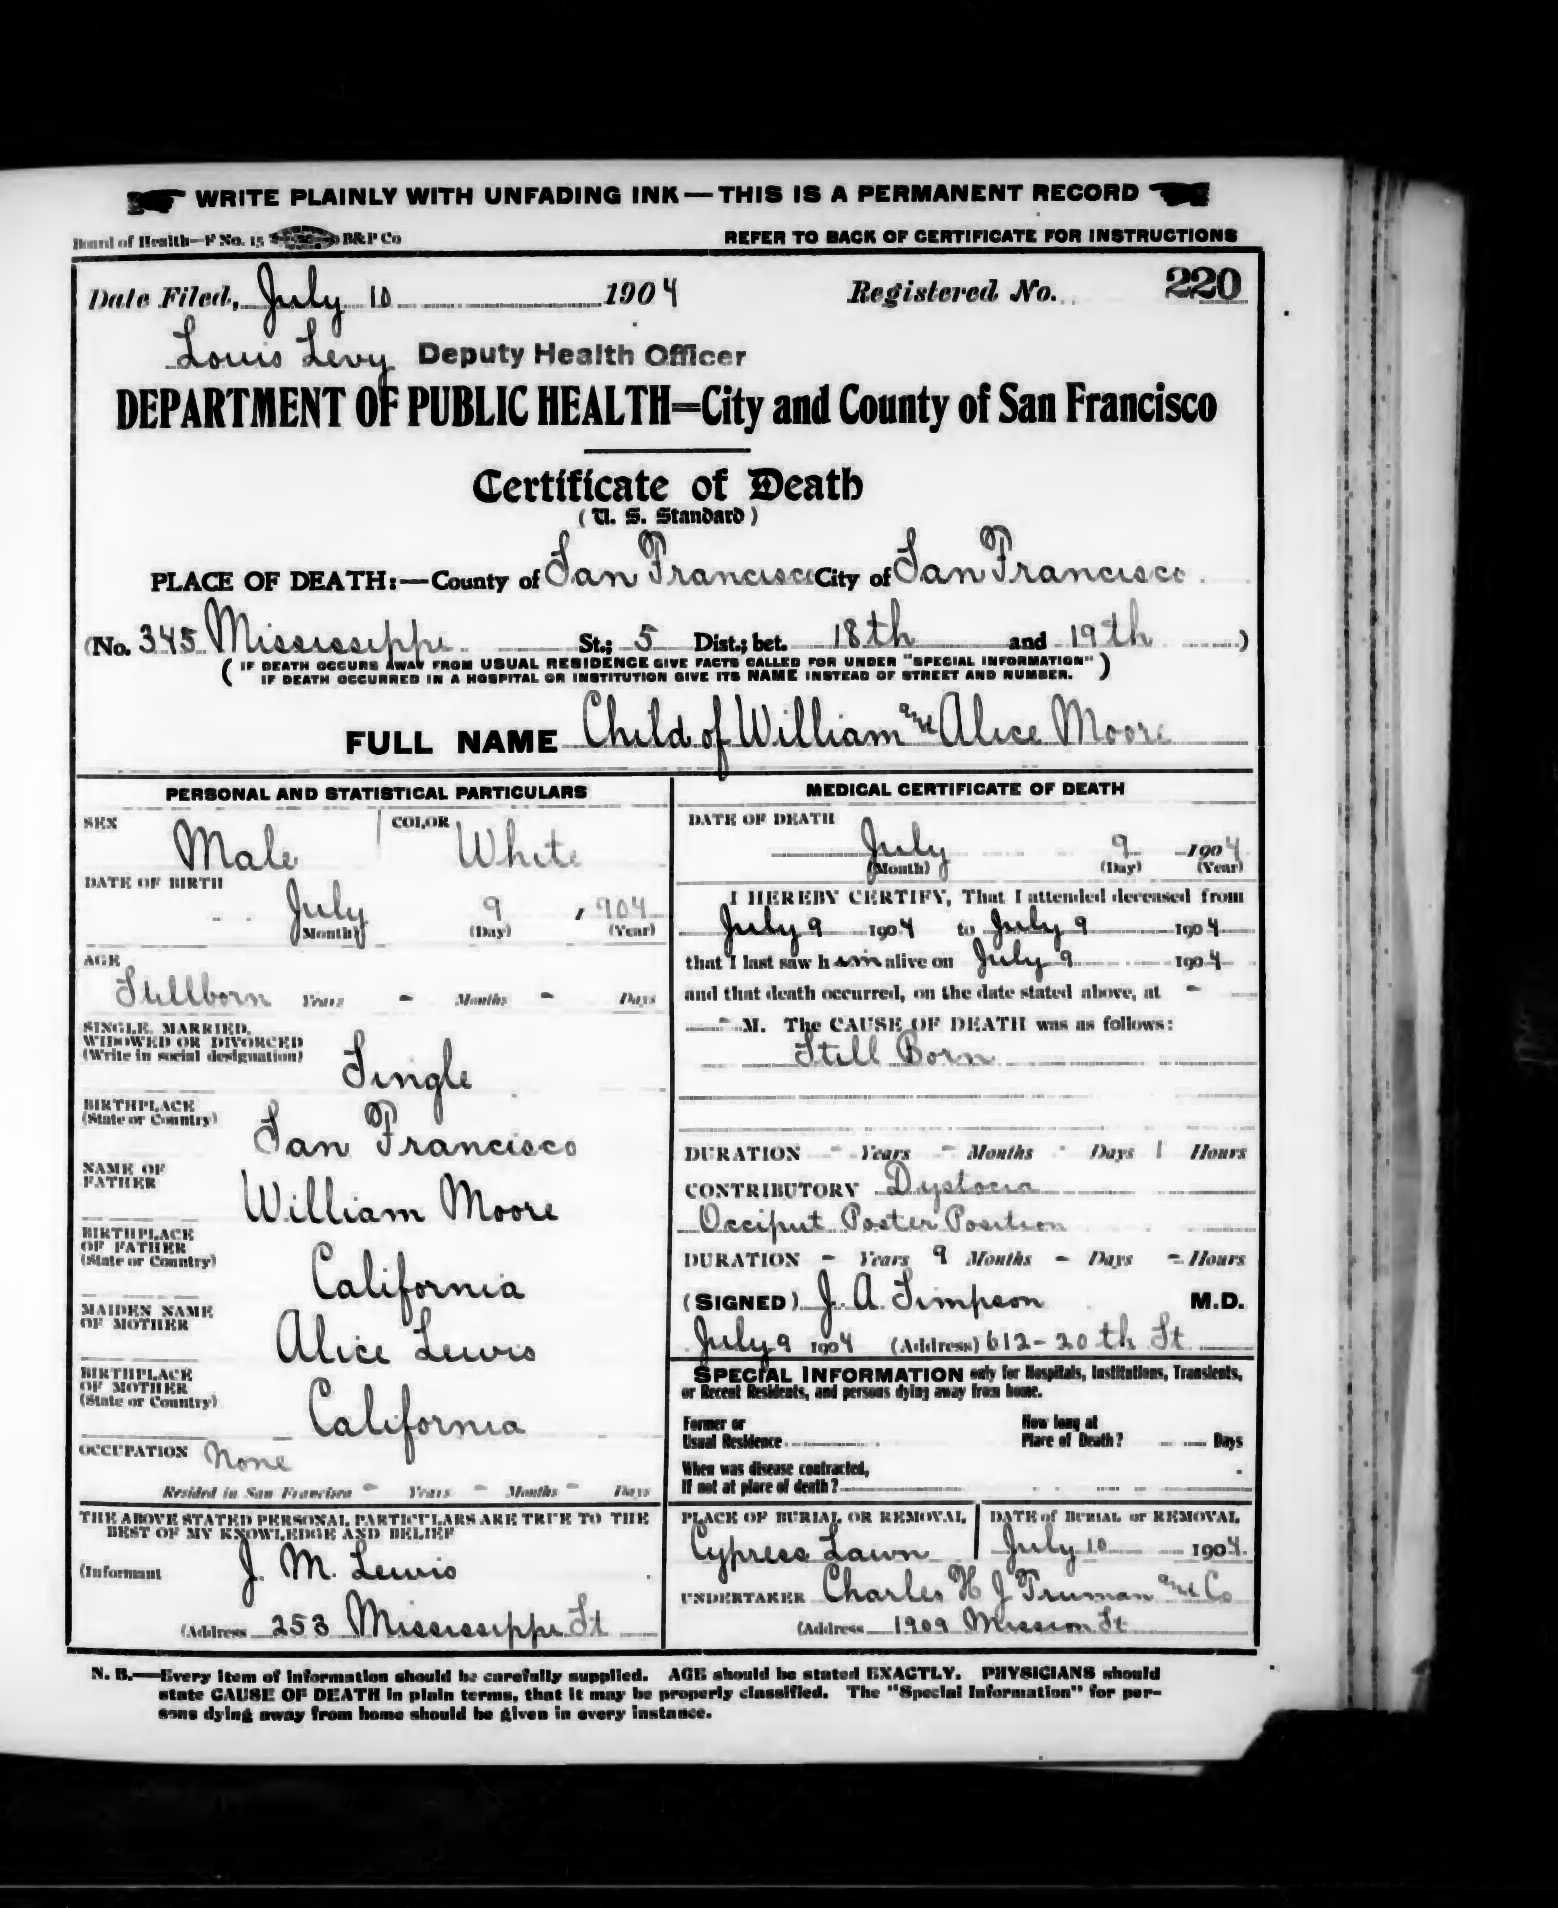 WRITE PLAINLY WITH UNFADING INK — THIS IS A PERMANENT RECORD
Board of Health—F No. 15 B&P Co REFER TO BACK OF CERTIFICATE FOR INSTRUCTIONS
Date Filed, July 10 1904 Registered No. 220
Louis Levy Deputy Health Officer
DEPARTMENT OF PUBLIC HEALTH=City and County of San Francisco
Certificate of Death
(U. S. Standard)
PLACE OF DEATH:—County of San Francisco City of San Francisco
(No. 345 Mississippi St.; 5 Dist.; bet. 18th and 19th)
(IF DEATH OCCURS AWAY FROM USUAL RESIDENCE GIVE FACTS CALLED FOR UNDER "SPECIAL INFORMATION"
IF DEATH OCCURRED IN A HOSPITAL OR INSTITUTION GIVE ITS NAME INSTEAD OF STREET AND NUMBER.)
FULL NAME Child of William and Alice Moore
PERSONAL AND STATISTICAL PARTICULARS
SEX Male COLOR White
DATE OF BIRTH
July 9, 904
(Month) (Day) (Year)
AGE
Stillborn Years - Months - Days
SINGLE, MARRIED,
WIDOWED OR DIVORCED
(Write in social designation)
Single
BIRTHPLACE
(State or Country)
San Francisco
NAME OF
FATHER
William Moore
BIRTHPLACE
OF FATHER
(State or Country)
California
MAIDEN NAME
OF MOTHER
Alice Lewis
BIRTHPLACE
OF MOTHER
(State or Country)
California
OCCUPATION None
Resided in San Francisco - Years - Months - Days
THE ABOVE STATED PERSONAL PARTICULARS ARE TRUE TO THE
BEST OF MY KNOWLEDGE AND BELIEF
(Informant J. M. Lewis
(Address 253 Mississippi St
MEDICAL CERTIFICATE OF DEATH
DATE OF DEATH
July 9 1904
(Month) (Day) (Year)
I HEREBY CERTIFY, That I attended deceased from
July 9 1904 to July 9 1904
that I last saw him alive on July 9 1904
and that death occurred, on the date stated above, at -
- M. The CAUSE OF DEATH was as follows:
Still Born
DURATION - Years - Months - Days 1 Hours
CONTRIBUTORY Dystocia
Occiput Poster Position
DURATION - Years 9 Months - Days - Hours
(SIGNED) J. A. Simpson M.D.
July 9 1904 (Address) 612-20th St
SPECIAL INFORMATION only for Hospitals, Institutions, Transients,
or Recent Residents, and persons dying away from home.
Former or
Usual Residence
How long at
Place of Death? Days
When was disease contracted,
If not at place of death?
PLACE OF BURIAL OR REMOVAL
Cypress Lawn
DATE of BURIAL or REMOVAL
July 10 1904
UNDERTAKER Charles H J Truman and Co
(Address 1909 Mission St
N. B.—Every item of information should be carefully supplied. AGE should be stated EXACTLY. PHYSICIANS should
state CAUSE OF DEATH in plain terms, that it may be properly classified. The "Special Information" for per-
sons dying away from home should be given in every instance.